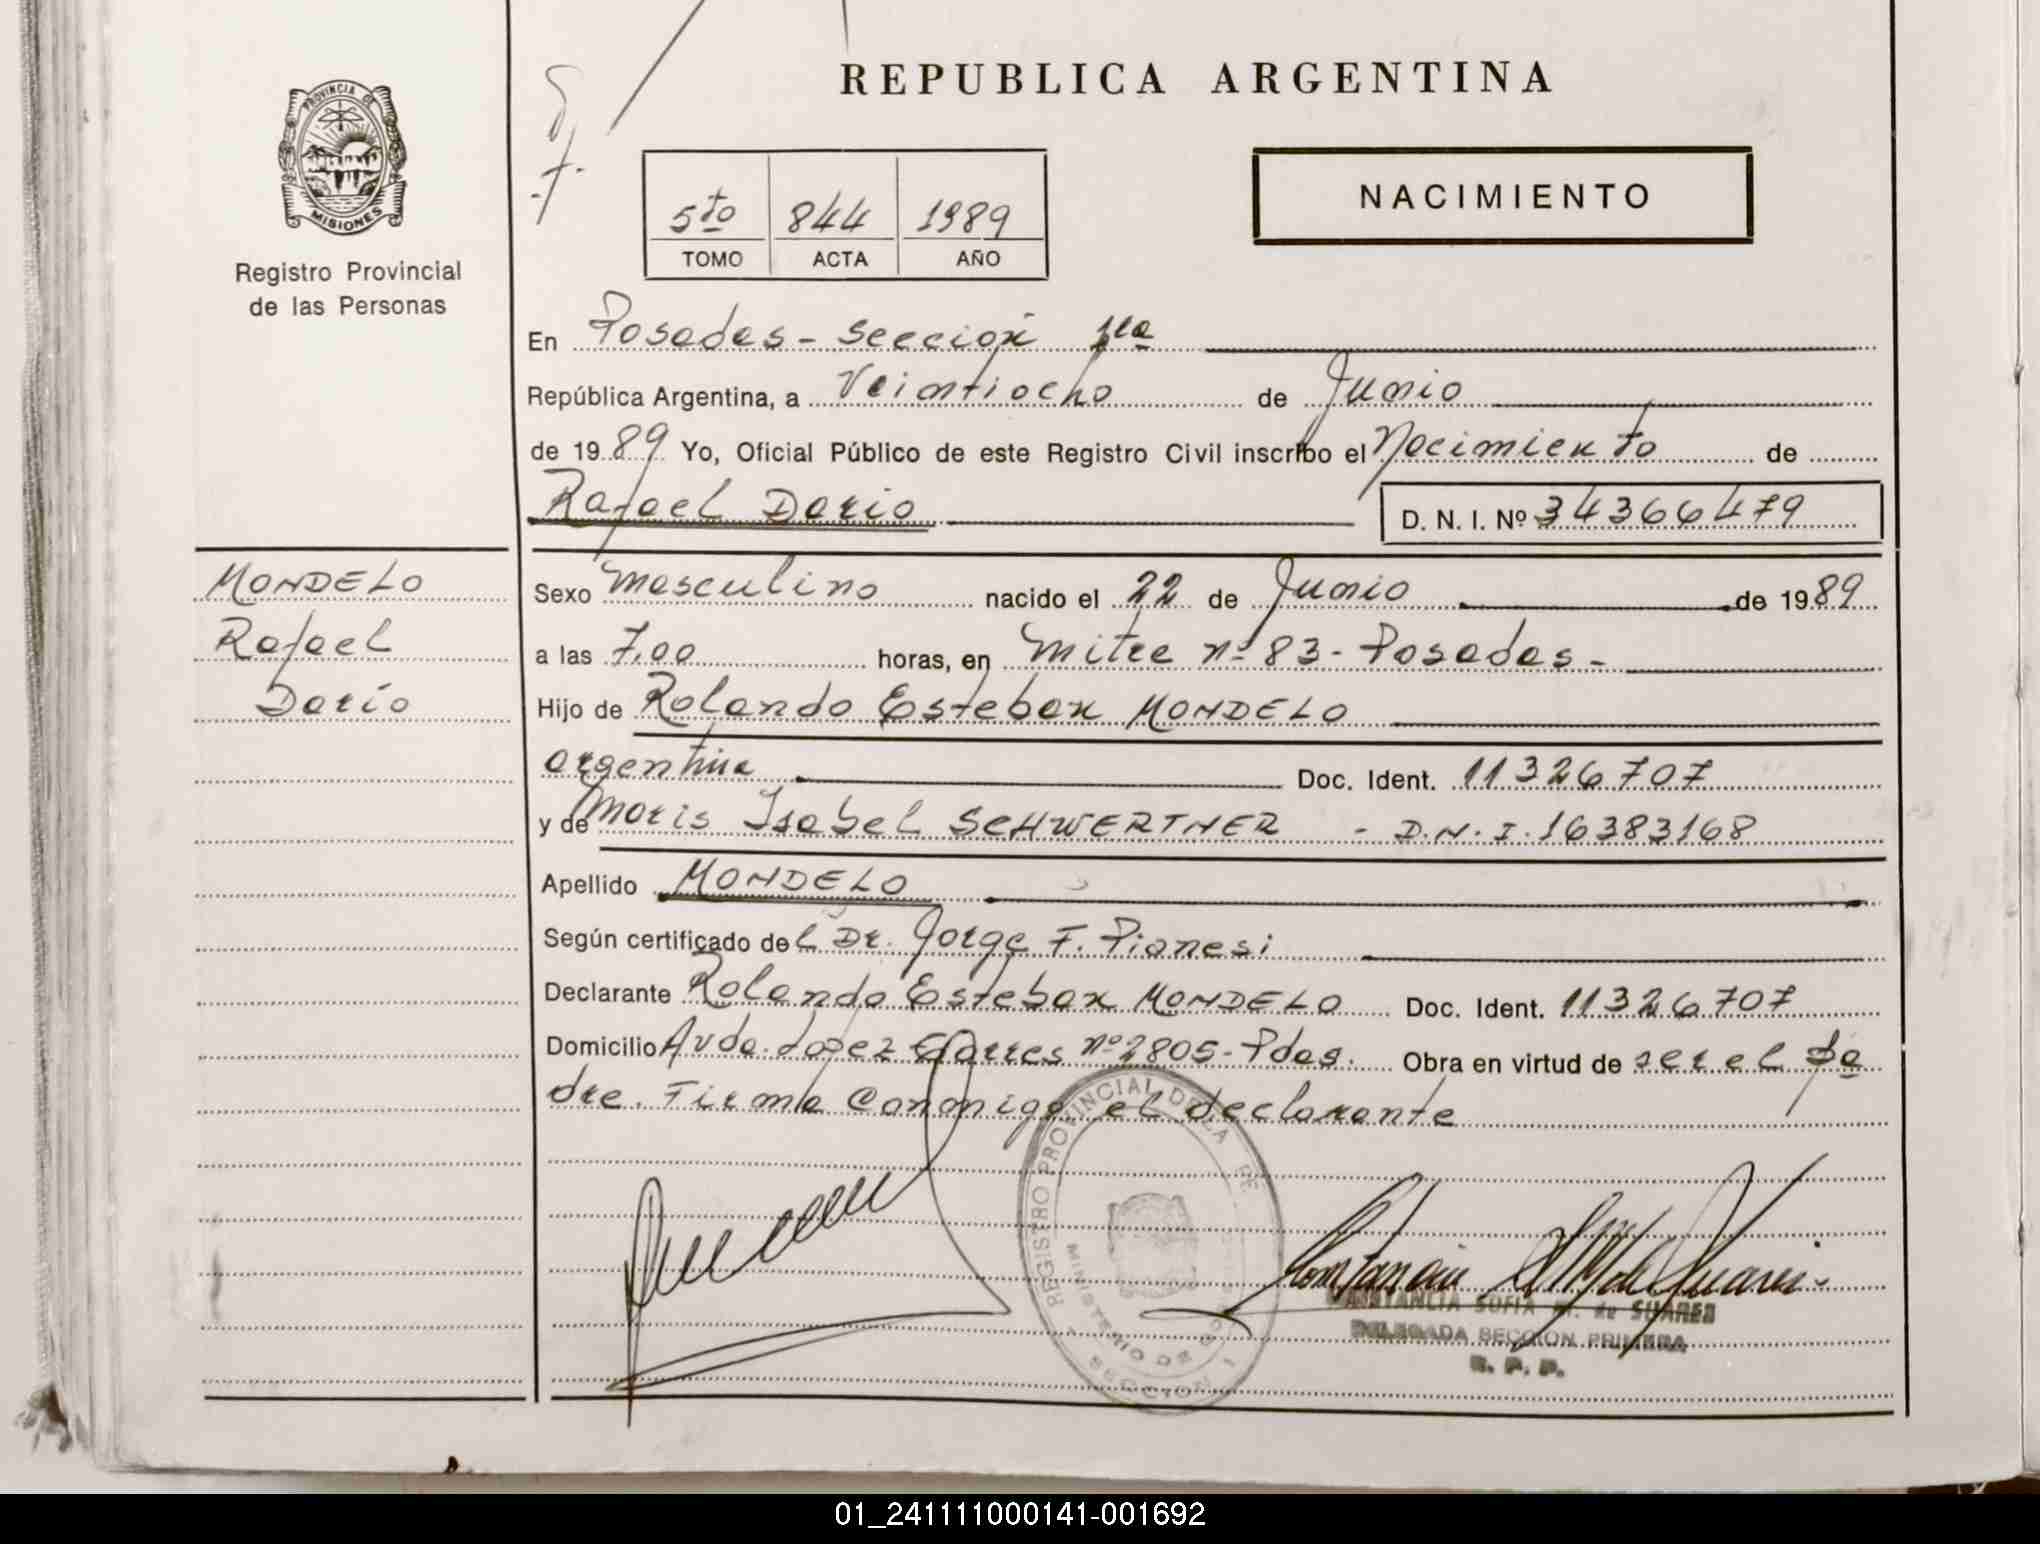 REPUBLICA ARGENTINA
PROVINCIA DE
MISIONES
Registro Provincial
de las Personas
NACIMIENTO
5to 844 1989
TOMO ACTA AÑO
En Posadas - Sección 1ra
República Argentina, a Veintiocho de Junio
de 1989 Yo, Oficial Público de este Registro Civil inscribo el Nacimiento de
Rafael Dario D. N. I. Nº 34366479
MONDELO
Rafael
Darío
Sexo Masculino nacido el 22 de Junio de 1989
a las 7,00 horas, en Mitre nº 83 - Posadas -
Hijo de Rolando Esteban MONDELO
argentina Doc. Ident. 11326707
y de Maris Isabel SCHWERTNER - D.N.I. 16383168
Apellido MONDELO
Según certificado del Dr. Jorge F. Pianesi
Declarante Rolando Esteban MONDELO Doc. Ident. 11326707
Domicilio Avda. López Torres nº 2805 - Pdas. Obra en virtud de ser el Pa
dre. Firma Conmigo el declarante
REGISTRO PROVINCIAL DE LA DE
MINISTERIO DE
SECCION 1
CONSTANCIA SOFIA M. de SUARES
DELEGADA SECCION PRIMERA
R. P. P.
01_241111000141-001692